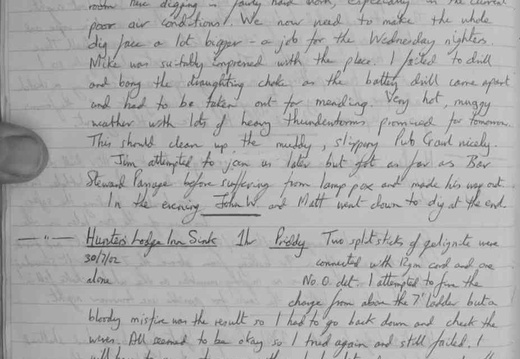 room have digging is fairly hard work, especially in the current
poor air conditions. We now need to make the whole
dig face a lot bigger - a job for the Wednesday nighters.
Mike was suitably impressed with the place. I failed to drill
and bang the draughting choke as the battery drill came apart
and had to be taken out for mending. Very hot, muggy
weather with lots of heavy thunderstorms promised for tomorrow.
This should clean up the muddy, slippery Pub Crawl nicely.
Jim attempted to join us later but got as far as Bar
Steward Passage before suffering from lamp pox and made his way out.
In the evening John W and Matt went down to dig at the end.
Hunters Lodge Inn Sink 1h Priddy Two split sticks of gelignite were
30/7/02 connected with 12gm cord and one
alone No. 0. det. I attempted to fire the
charge from above the 7' ladder but a
bloody misfire was the result so I had to go back down and check the
wires. All seemed to be okay so I tried again and still failed. I
will have to